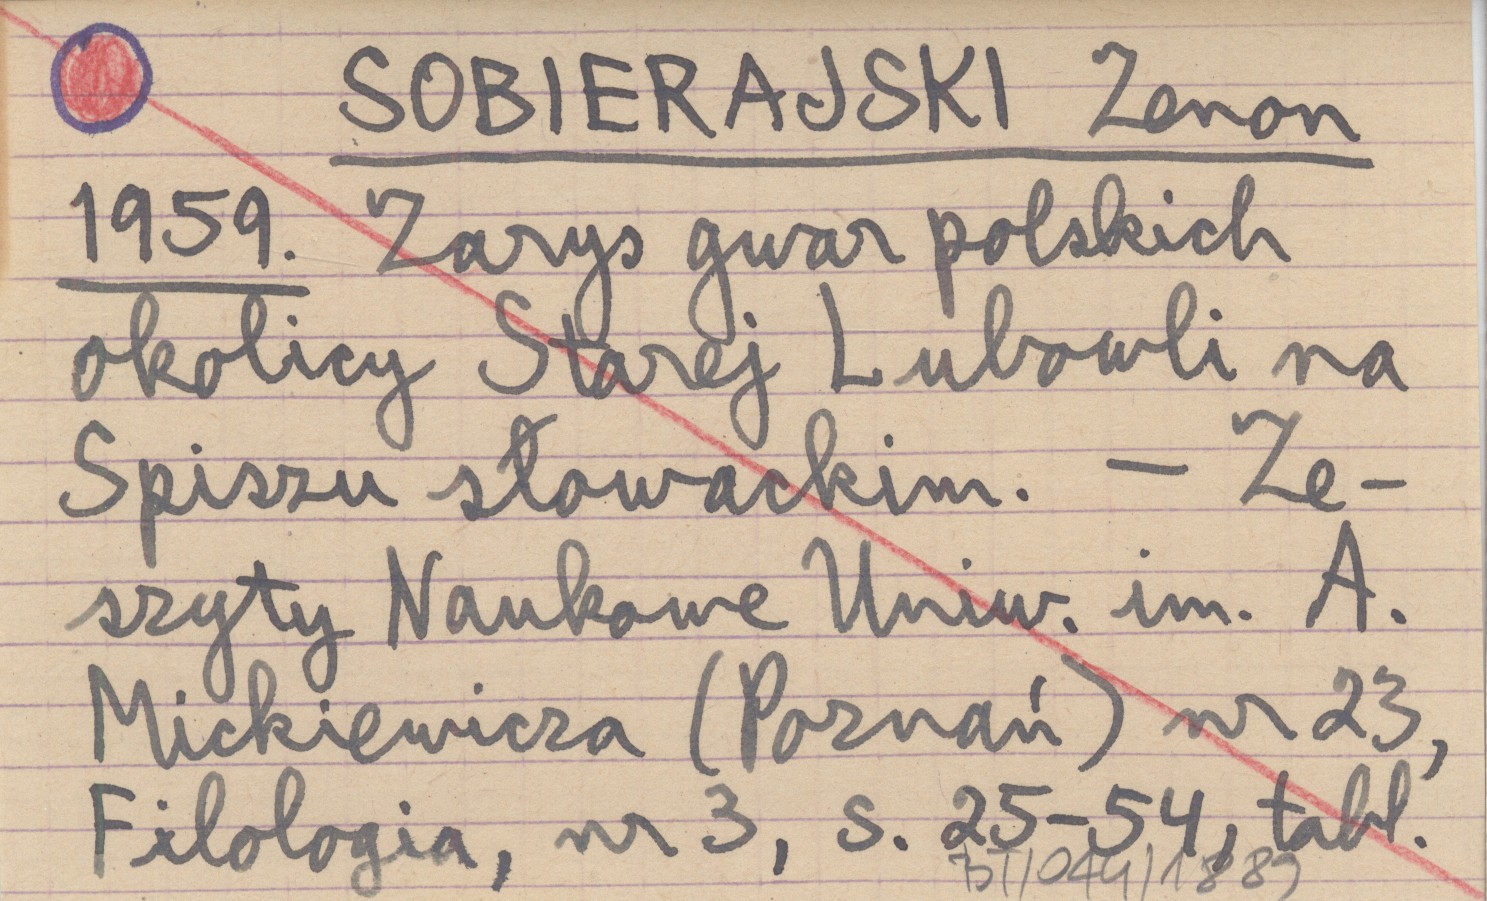 SOBIERAJSKI Zenon
1959. Zarys gwar polskich
okolicy Starej Lubowli na
Spiszu słowackim. – Ze-
szyty Naukowe Uniw. im. A.
Mickiewicza (Poznań) nr 23,
Filologia, nr 3, s. 25-54, tabl.
BT/044/1889